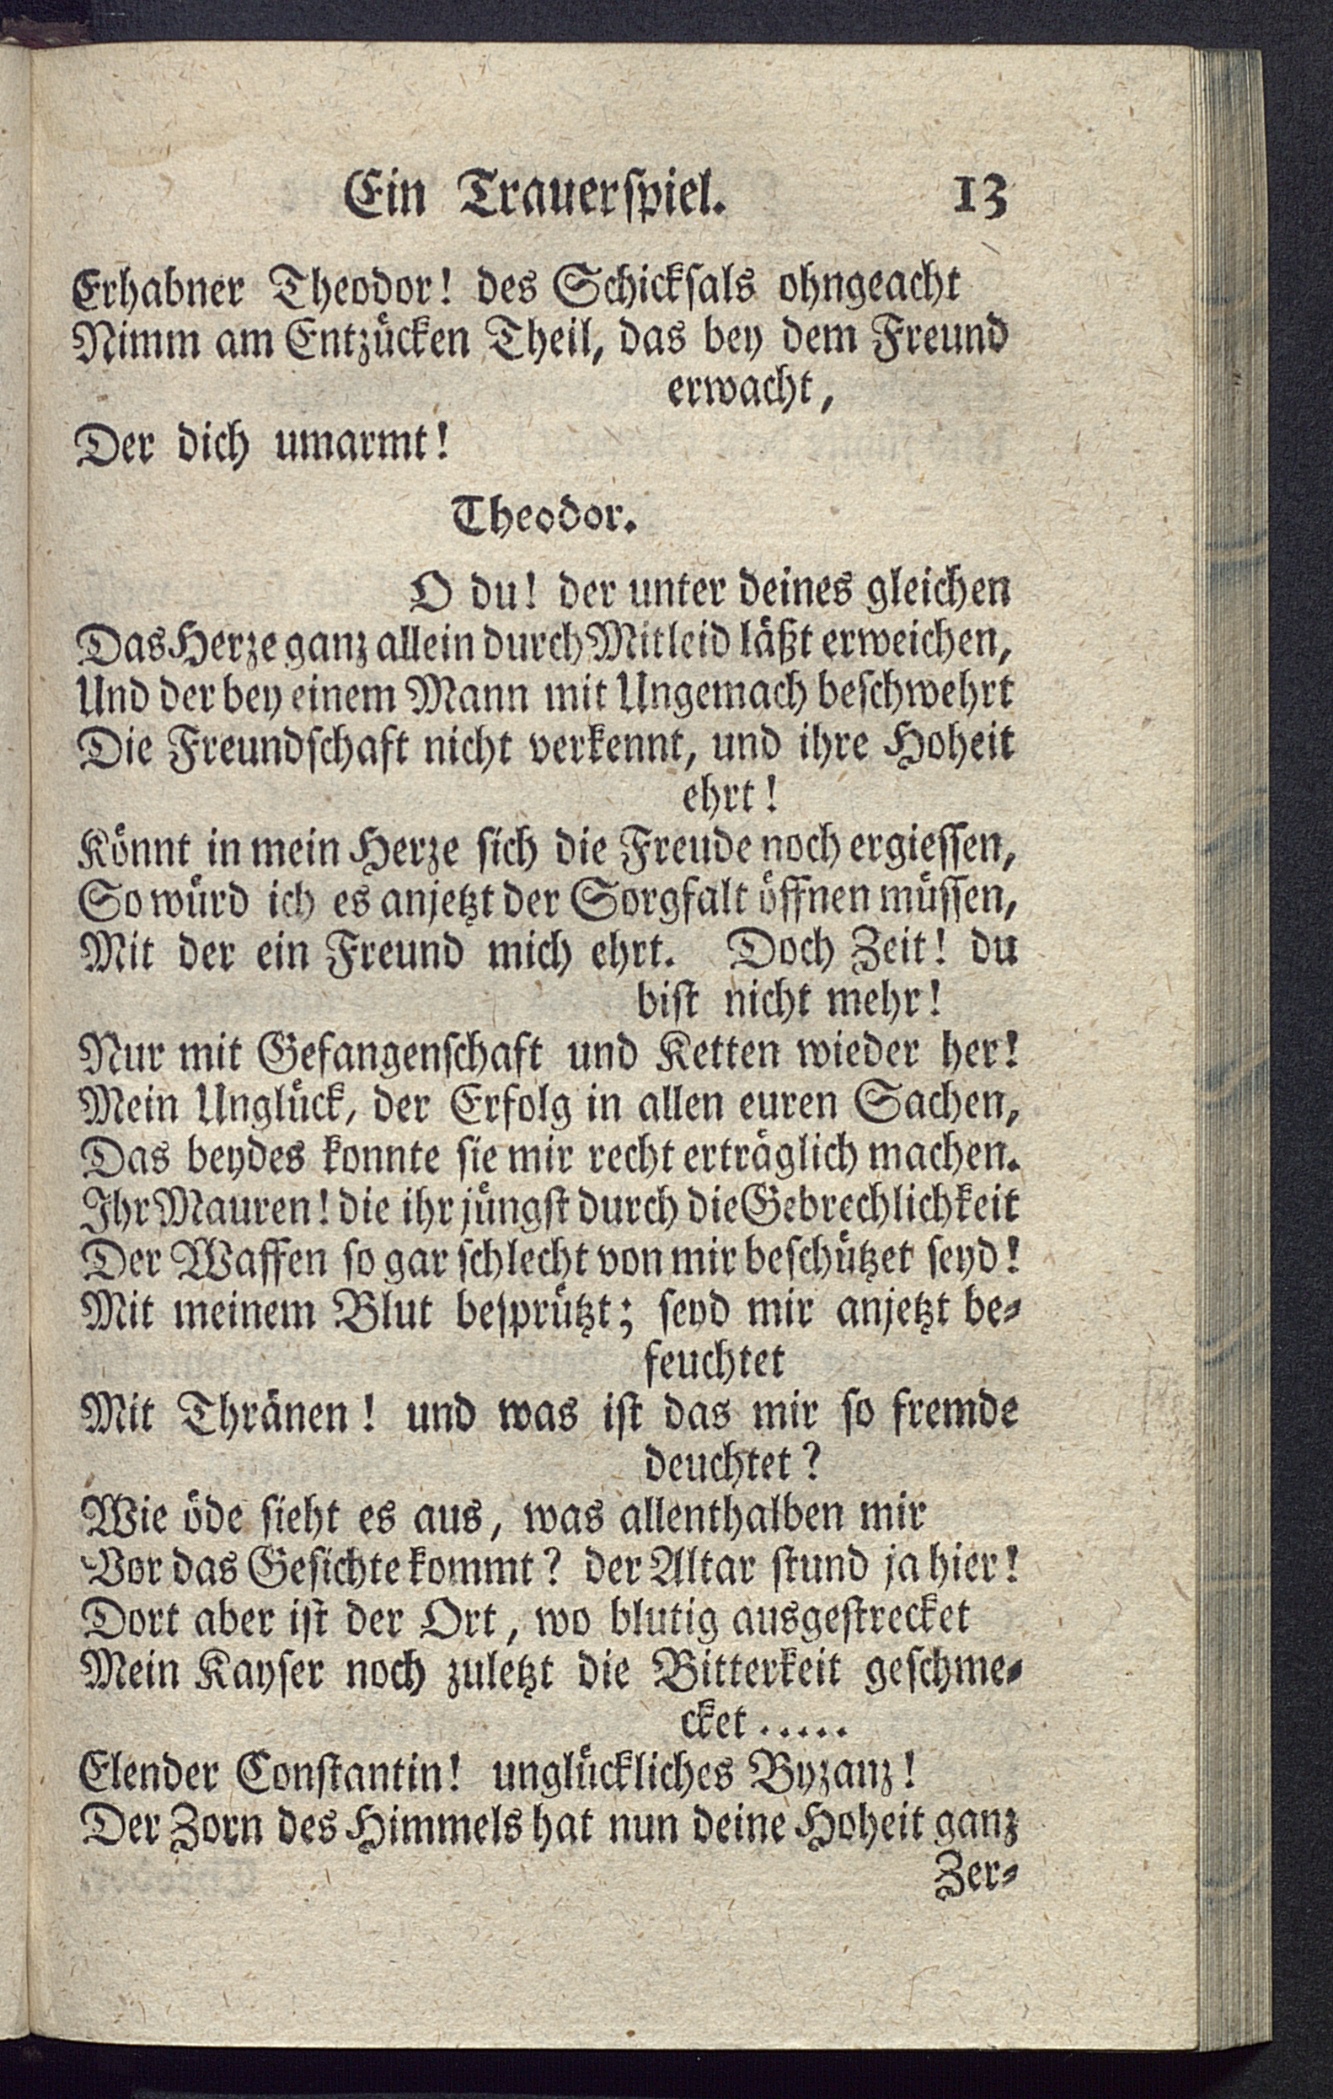 Ein Trauerspiel. 13
Erhabner Theodor! des Schicksals ohngeacht
Nimm am Entzücken Theil, das bey dem Freund
erwacht,
Der dich umarmt!
Theodor.
O du! der unter deines gleichen
Das Herze ganz allein durch Mitleid läßt erweichen,
Und der bey einem Mann mit Ungemach beschwehrt
Die Freundschaft nicht verkennt, und ihre Hoheit
ehrt!
Könnt in mein Herze sich die Freude noch ergiessen,
So würd ich es anjetzt der Sorgfalt öffnen müssen,
Mit der ein Freund mich ehrt. Doch Zeit! du
bist nicht mehr!
Nur mit Gefangenschaft und Ketten wieder her!
Mein Unglück, der Erfolg in allen euren Sachen,
Das beydes konnte sie mir recht erträglich machen.
Ihr Mauren! die ihr jüngst durch die Gebrechlichkeit
Der Waffen so gar schlecht von mir beschützet seyd!
Mit meinem Blut besprützt; seyd mir anjetzt be-
feuchtet
Mit Thränen! und was ist das mir so fremde
deuchtet?
Wie öde sieht es aus, was allenthalben mir
Vor das Gesichte kommt? der Altar stund ja hier!
Dort aber ist der Ort, wo blutig ausgestrecket
Mein Kayser noch zuletzt die Bitterkeit geschme-
cket.....
Elender Constantin! unglückliches Byzanz!
Der Zorn des Himmels hat nun deine Hoheit ganz
Zer-